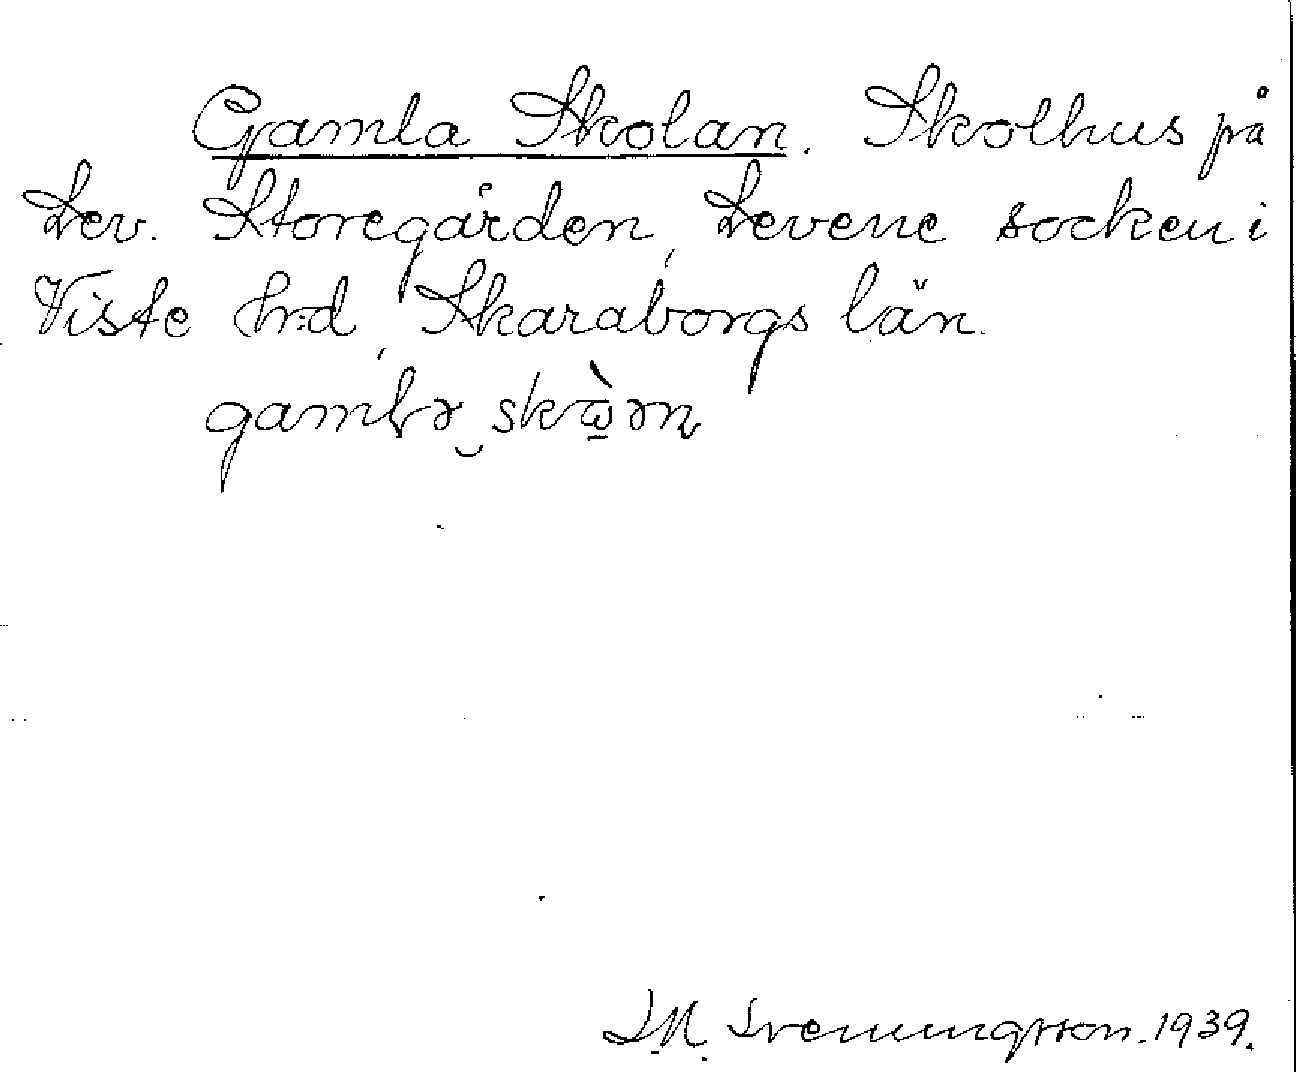 Gamla Skolan. Skolhus på
Lev. Storegården, Levene socken i
Viste h:d, Skaraborgs län.
1939.